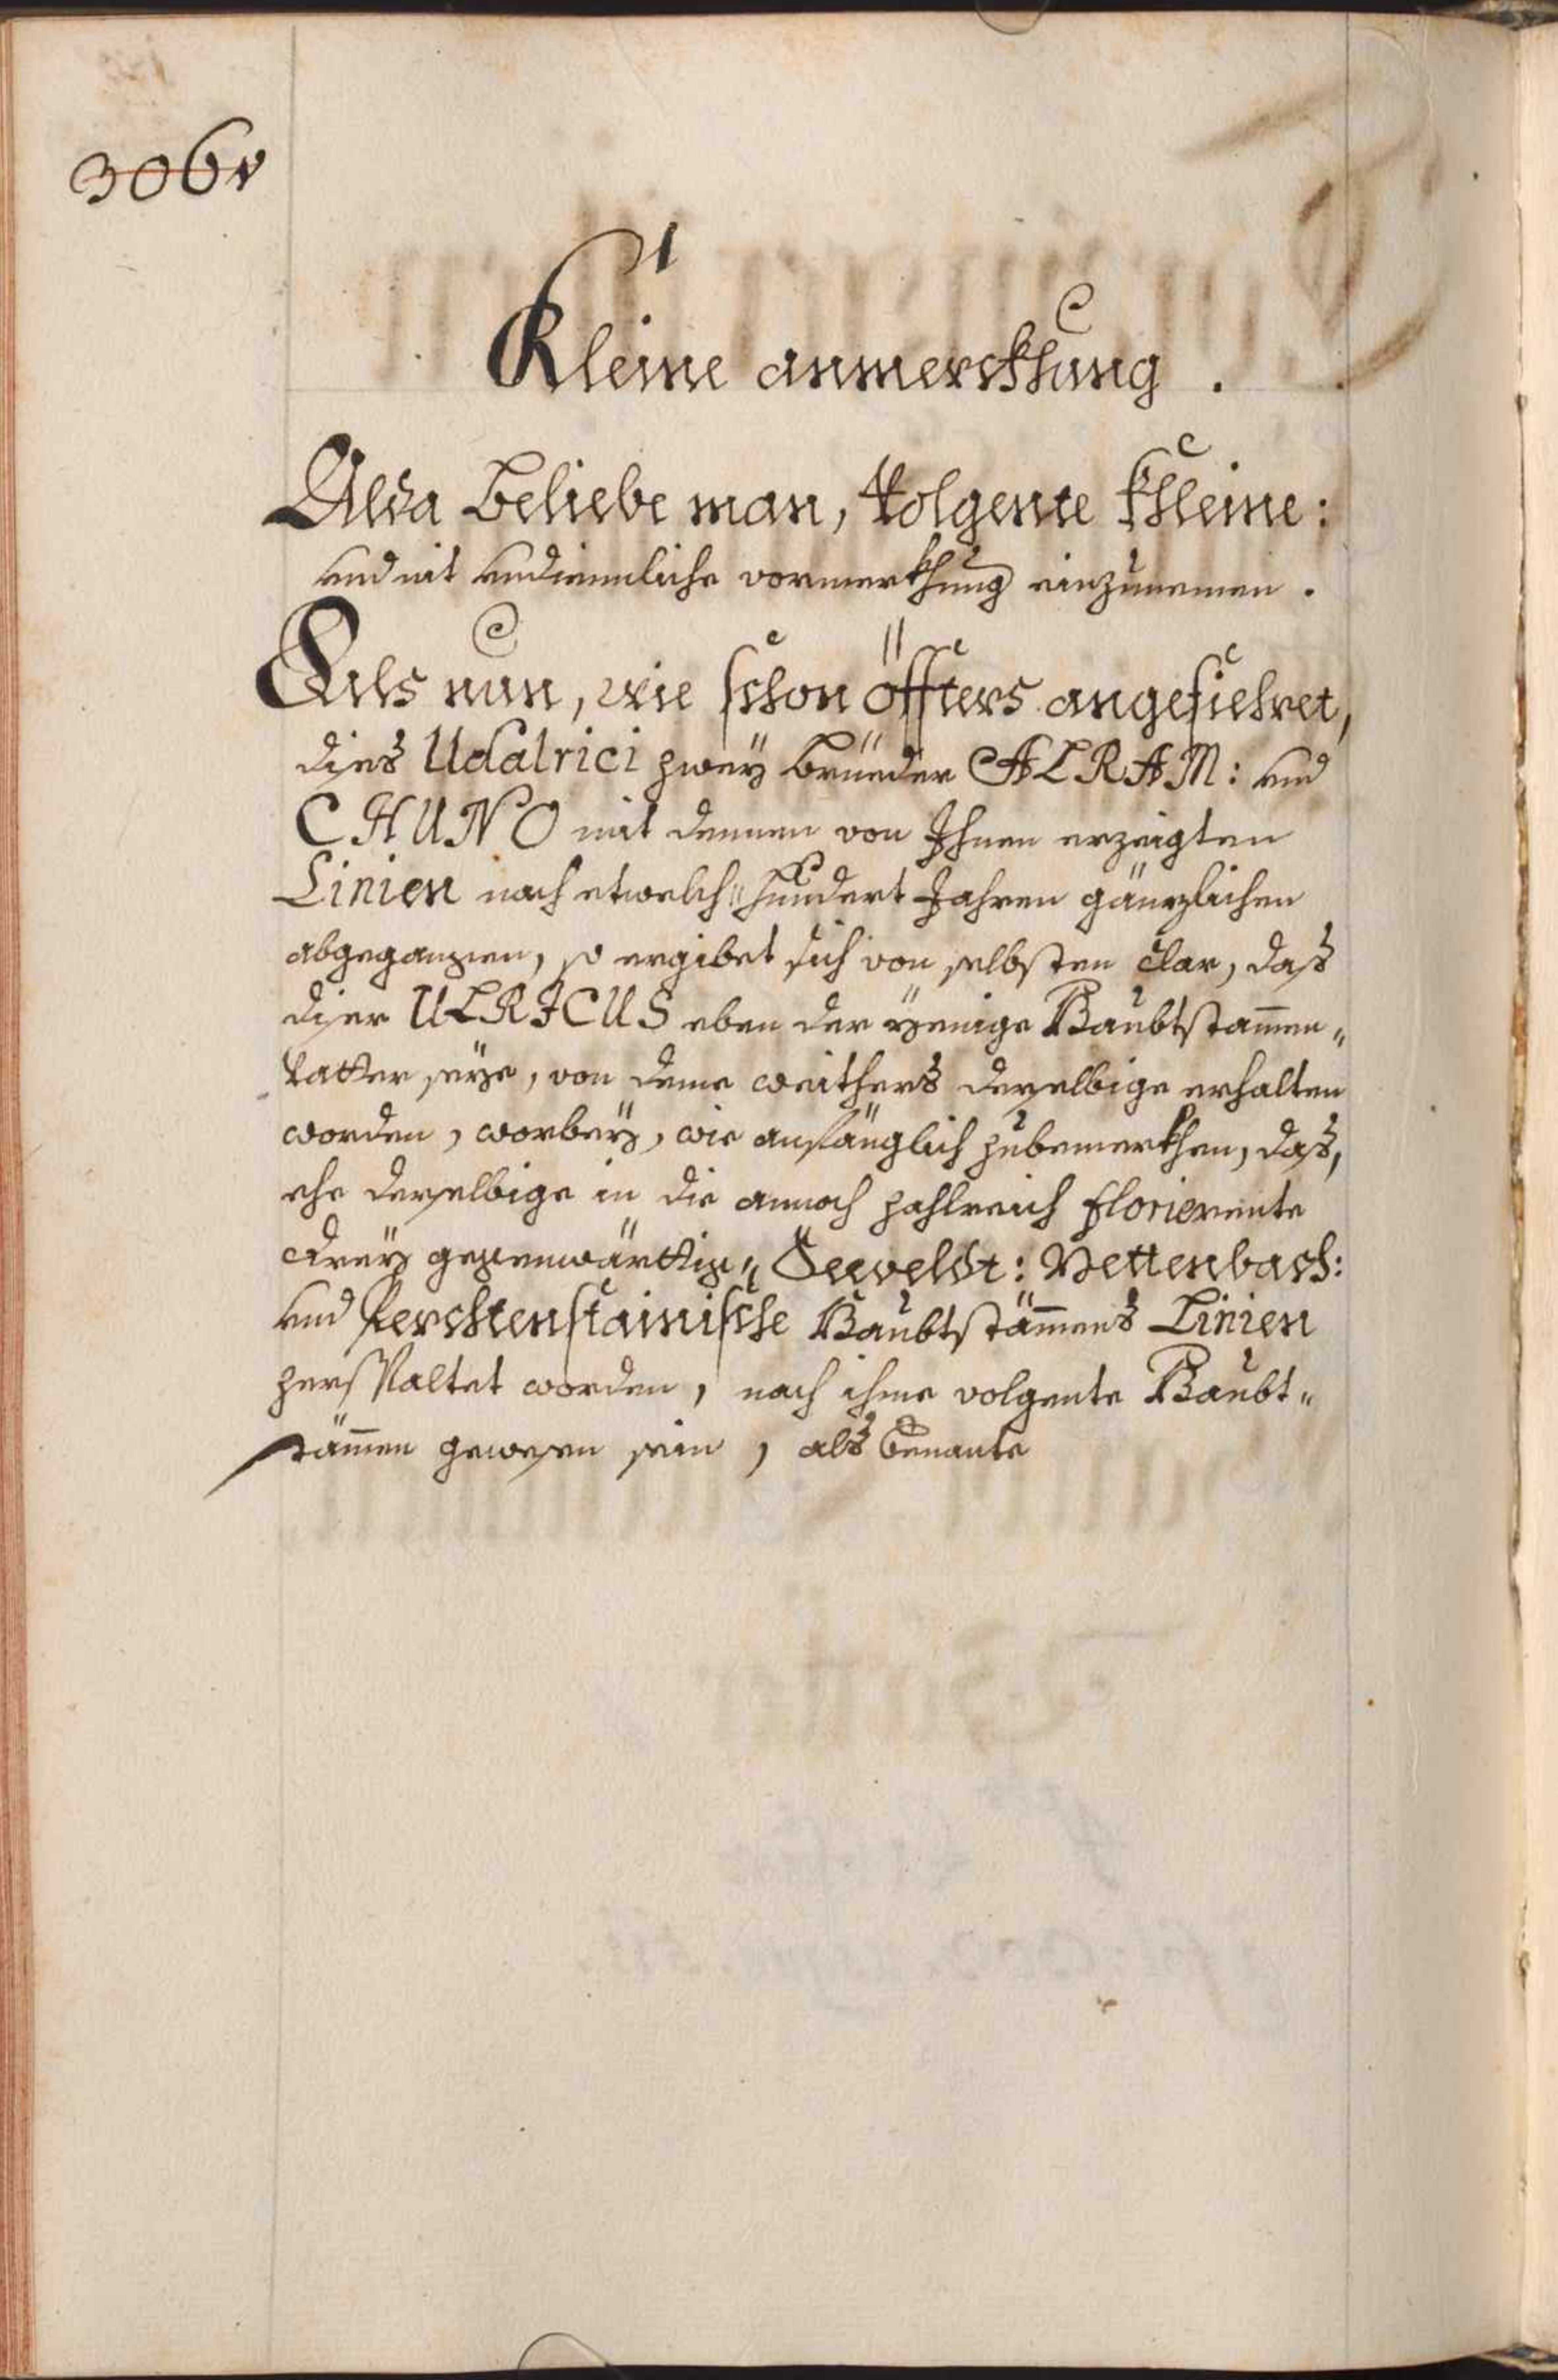 306v
Kleine anmerckhung.
Alda Beliebe man, Volgente khleine:
und nit undiennliche vormerkhung einzunemen.
Als nun, wie schon öffters angefiehret,
dises Udalrici zwey brüeder ALRAM: und
CHUNO mit dennen von Ihnen erzeigten
Linien nach etwelch„ hundert Jahren gänzlichen
abgegangen, so ergibet sich von selbsten clar, daß
diser ULRICUS eben der yenige Haubtstam̄en„
vatter seye, von deme weithers derselbige erhalten
worden, worbey, wie anfänglich zubemerkhen, das,
ehe derselbige in die annoch zahlreich florierente
drey gegenwärttig„ Seeveldt: Mettenbach:
und Perchtenstainische Haubtstäm̄ens Linien
zerspaltet worden, nach ihme volgente Haubt„
stäm̄en gewesen sein, als benante